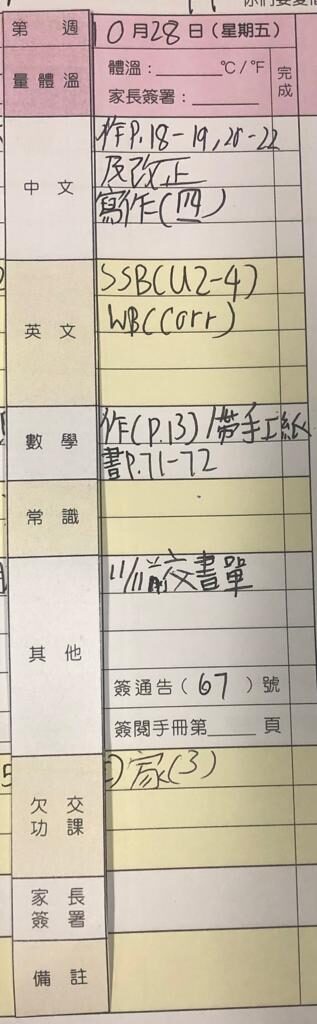 第 週 10月28日(星期五)
量體溫 體溫:______°C/°F 完成
家長簽署:______
中文 作P.18-19,20-22
及改正
寫作(四)
英文 SSB(U2-4)
WB(Corr)
數學 作(P.13)/帶手工紙
書P.71-72
常識
其他 11/11前交書單
簽通告(67)號
簽閱手冊第____頁
欠交功課 家(3)
家長簽署
備註